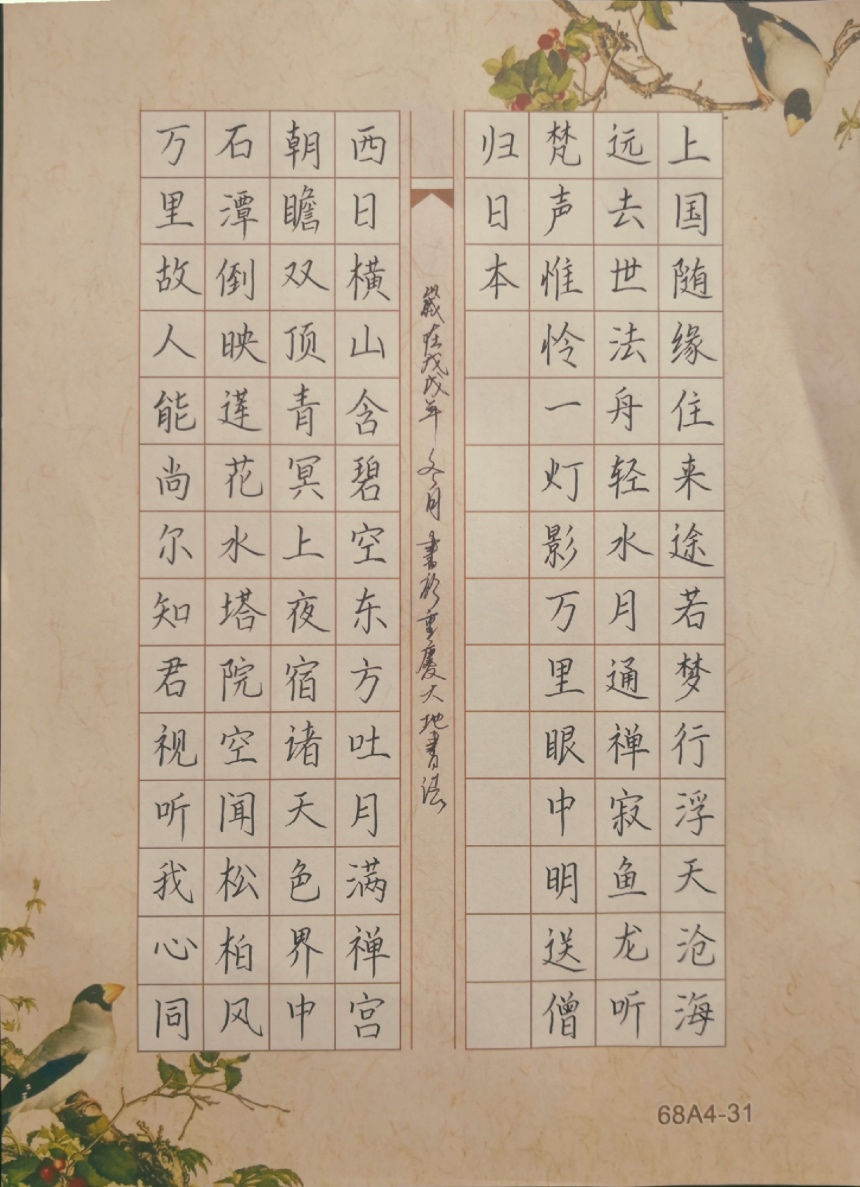 上国随缘住来途若梦行浮天沧海
远去世法舟轻水月通禅寂鱼龙听
梵声惟怜一灯影万里眼中明送僧
归日本
歲在戊戌年冬月書於重慶大地書法
西日横山含碧空东方吐月满禅宫
朝瞻双顶青冥上夜宿诸天色界中
石潭倒映莲花水塔院空闻松柏风
万里故人能尚尔知君视听我心同
68A4-31